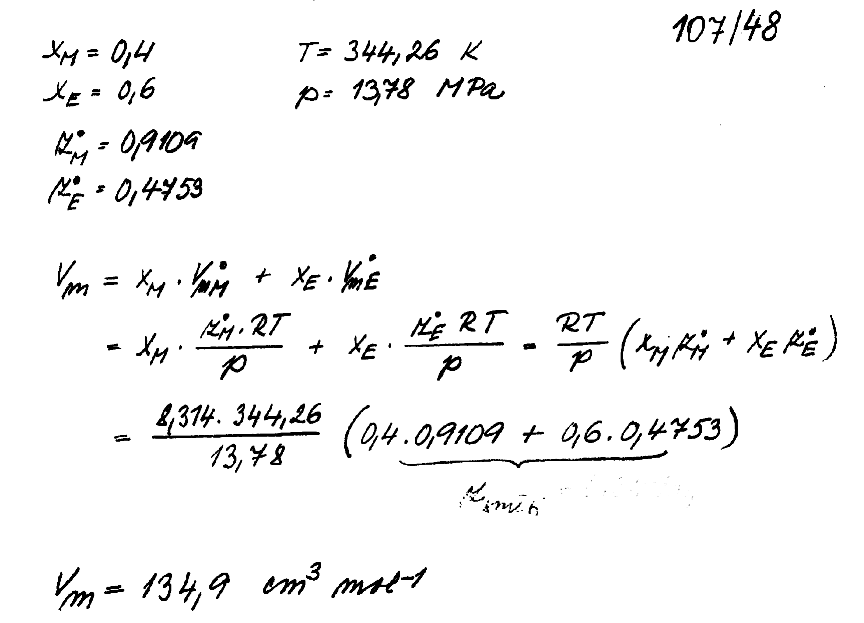 107/48
x_M = 0,4 T = 344,26 K
x_E = 0,6 p = 13,78 MPa
z_M^• = 0,9109
z_E^• = 0,4753
V_m = x_M · V_mM^• + x_E · V_mE^•
= x_M · \frac{z_M^• · RT}{p} + x_E · \frac{z_E^• RT}{p} = \frac{RT}{p} (x_M z_M^• + x_E z_E^•)
= \frac{8,314 · 344,26}{13,78} (0,4 · 0,9109 + 0,6 · 0,4753)
V_m = 134,9 cm³ mol⁻¹